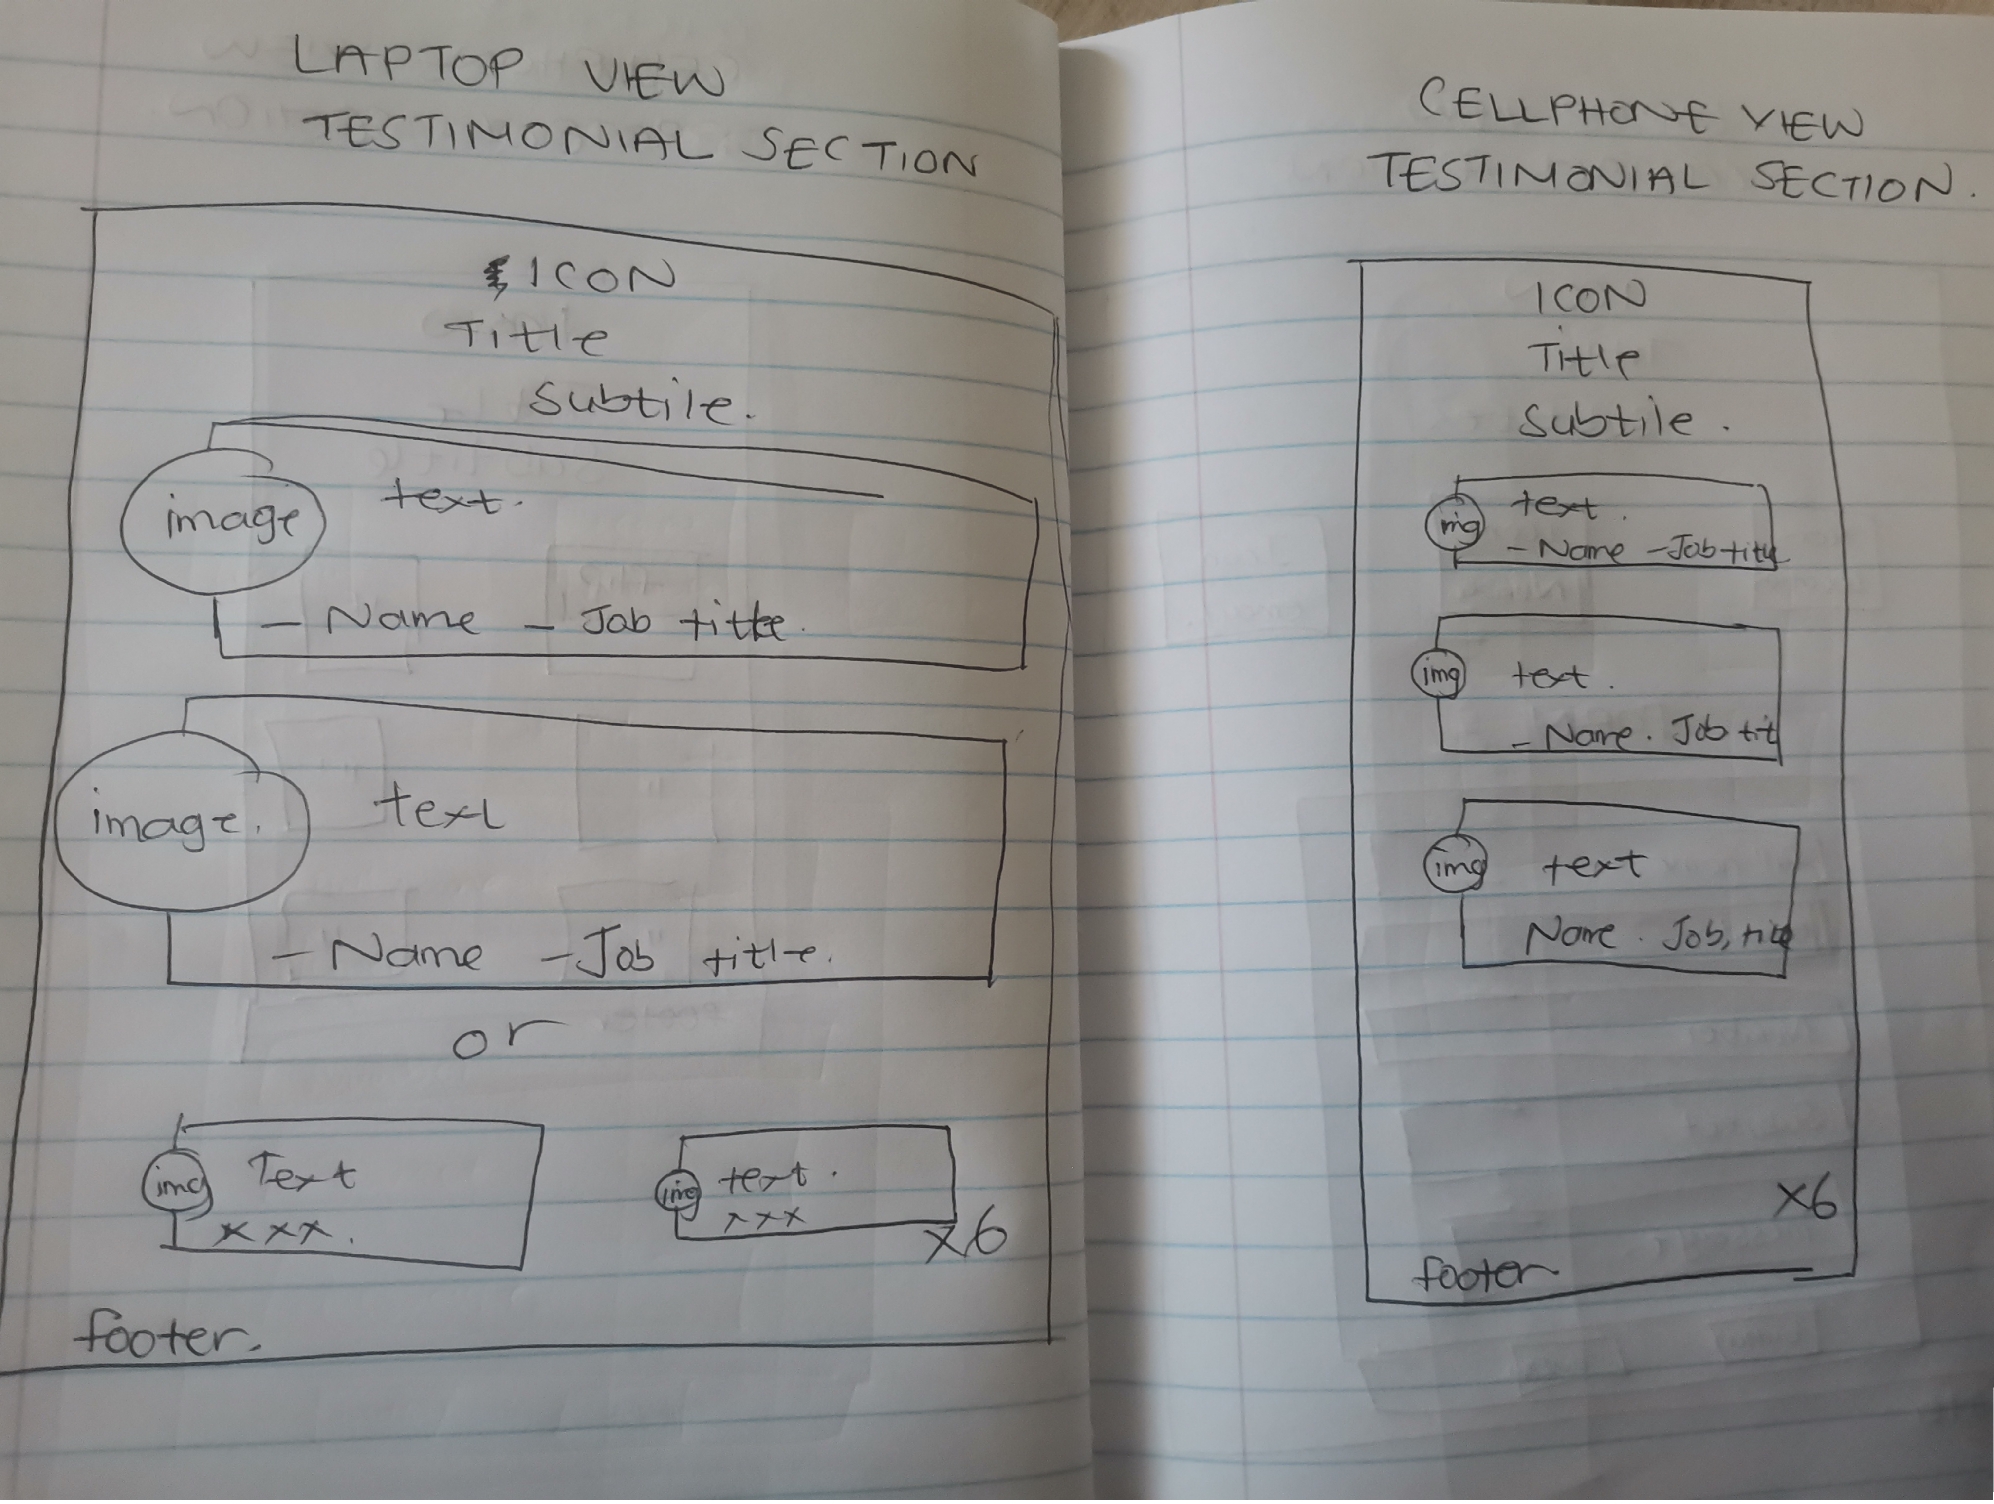 LAPTOP VIEW
TESTIMONIAL SECTION
ICON
Title
Subtile.
image
text.
- Name - Job title.
image.
text
- Name - Job title.
or
img Text
xxx.
img text.
xxx
x6
footer.
CELLPHONE VIEW
TESTIMONIAL SECTION.
ICON
Title
Subtile.
img text.
- Name - Job title
img text.
- Name. Job tit
img text
Name. Job, title
x6
footer